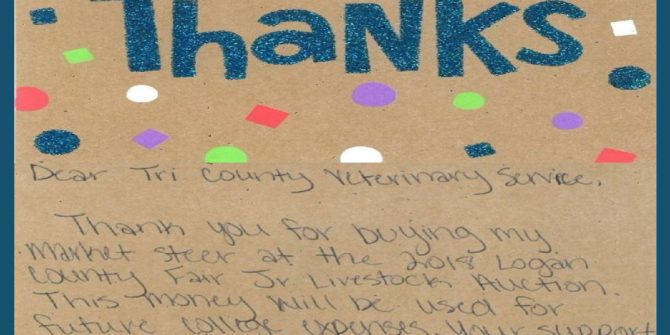 THANKS
Dear Tri County Veterinary Service,
Thank you for buying my
market steer at the 2018 Logan
County Fair Jr. Livestock Auction.
This money will be used for
future college expenses. Your support